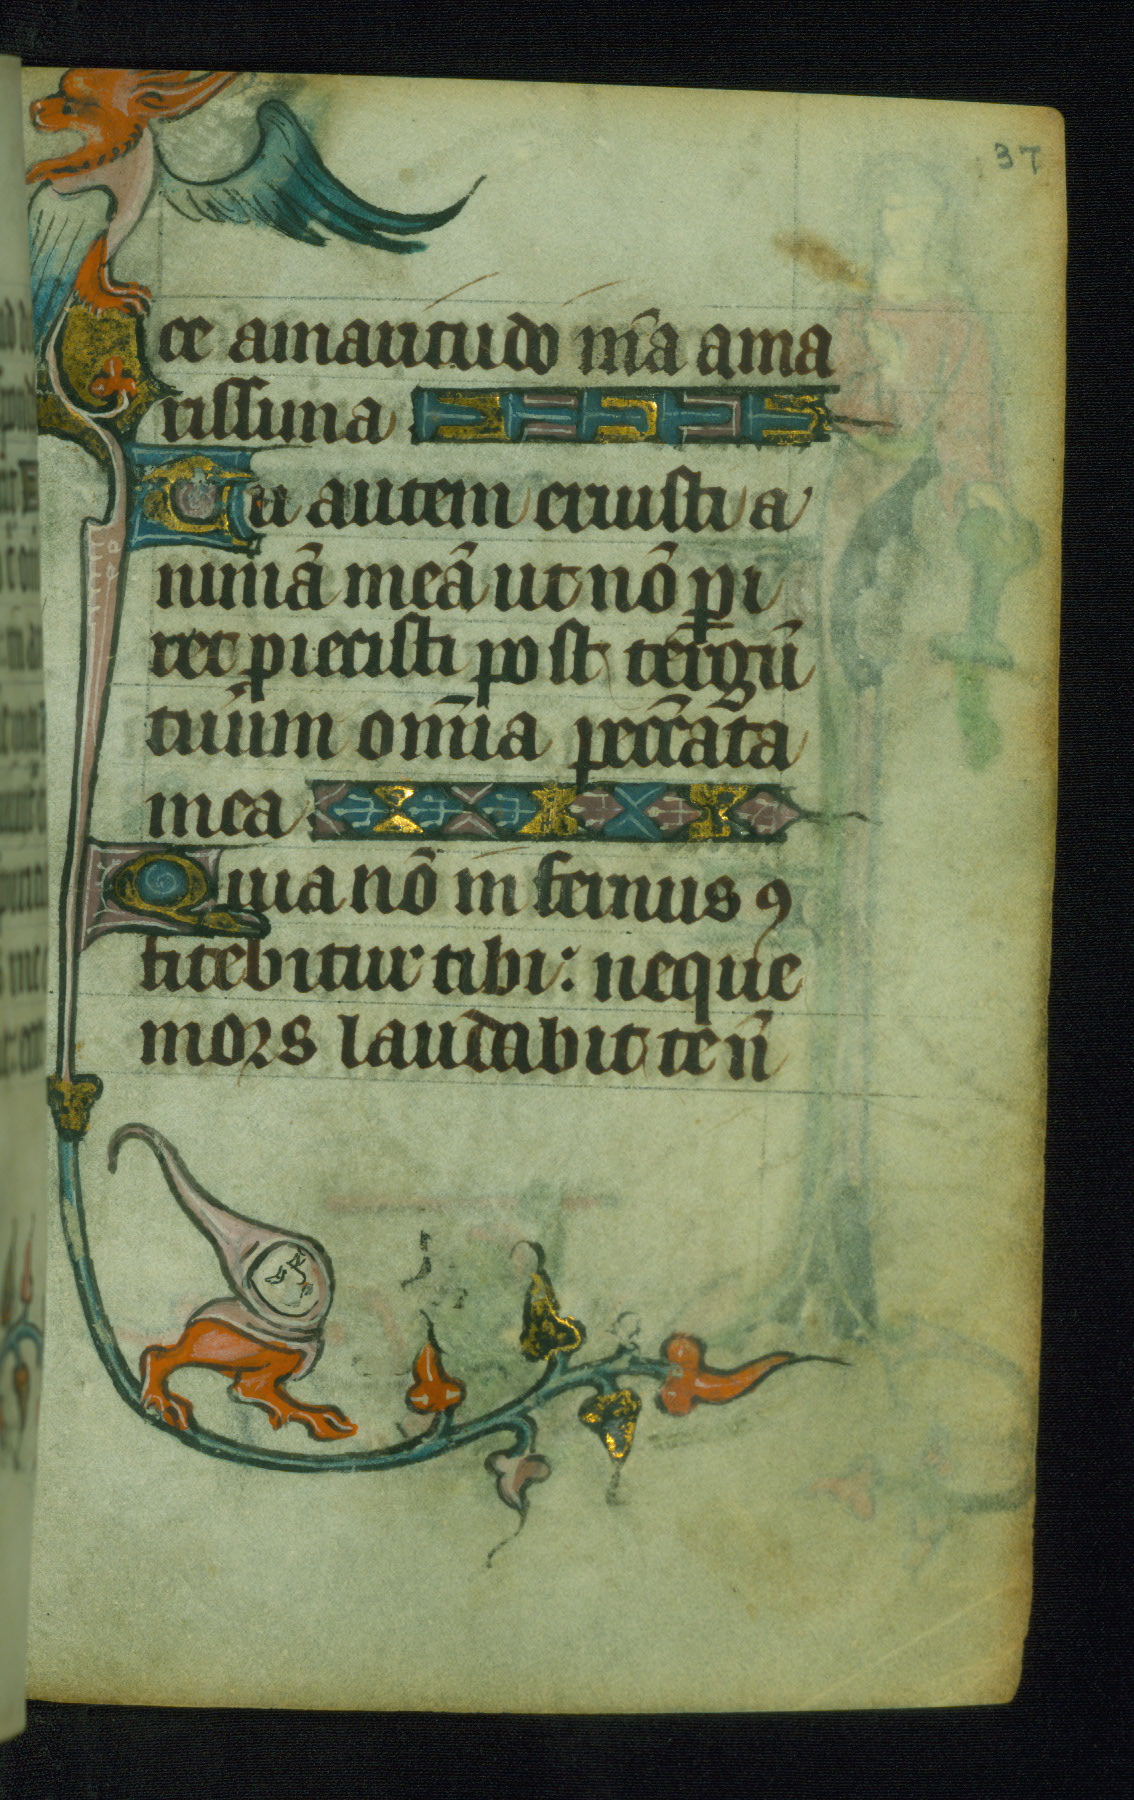 37
ce amaritudo m̄a ama
rissima
Tu autem eruisti a
nimā meā ut nō pi
ret piecisti post tergū
tuum om̄ia peccata
mea
Quia nō infernus ꝯ
fitebitur tibi: neque
mors laudabit te n̄